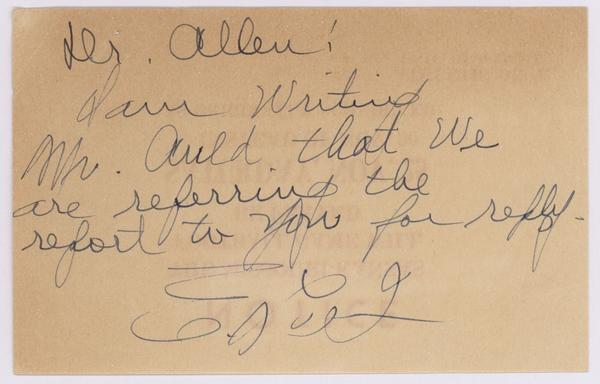 Dr. Allen!
I am Writing
Mr. Auld that We
are referring the
report to you for reply.